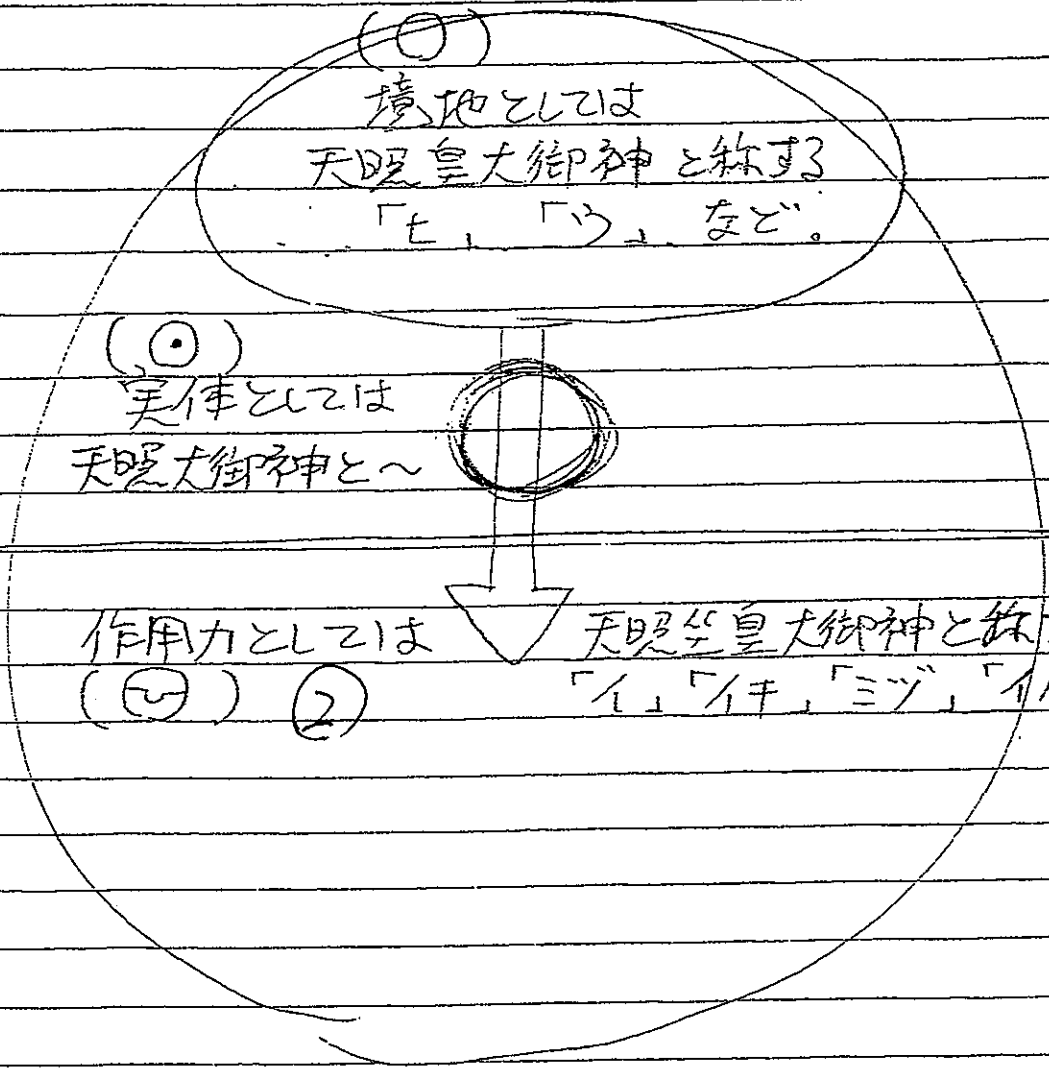 (○)
境地としては
天照皇大御神と称する
「ヒ」「ウ」など。
(⊙)
実体としては
天照大御神と〜
作用力としては
天照坐皇大御神と称
② 
「イ」「イキ」「ミヅ」「イ